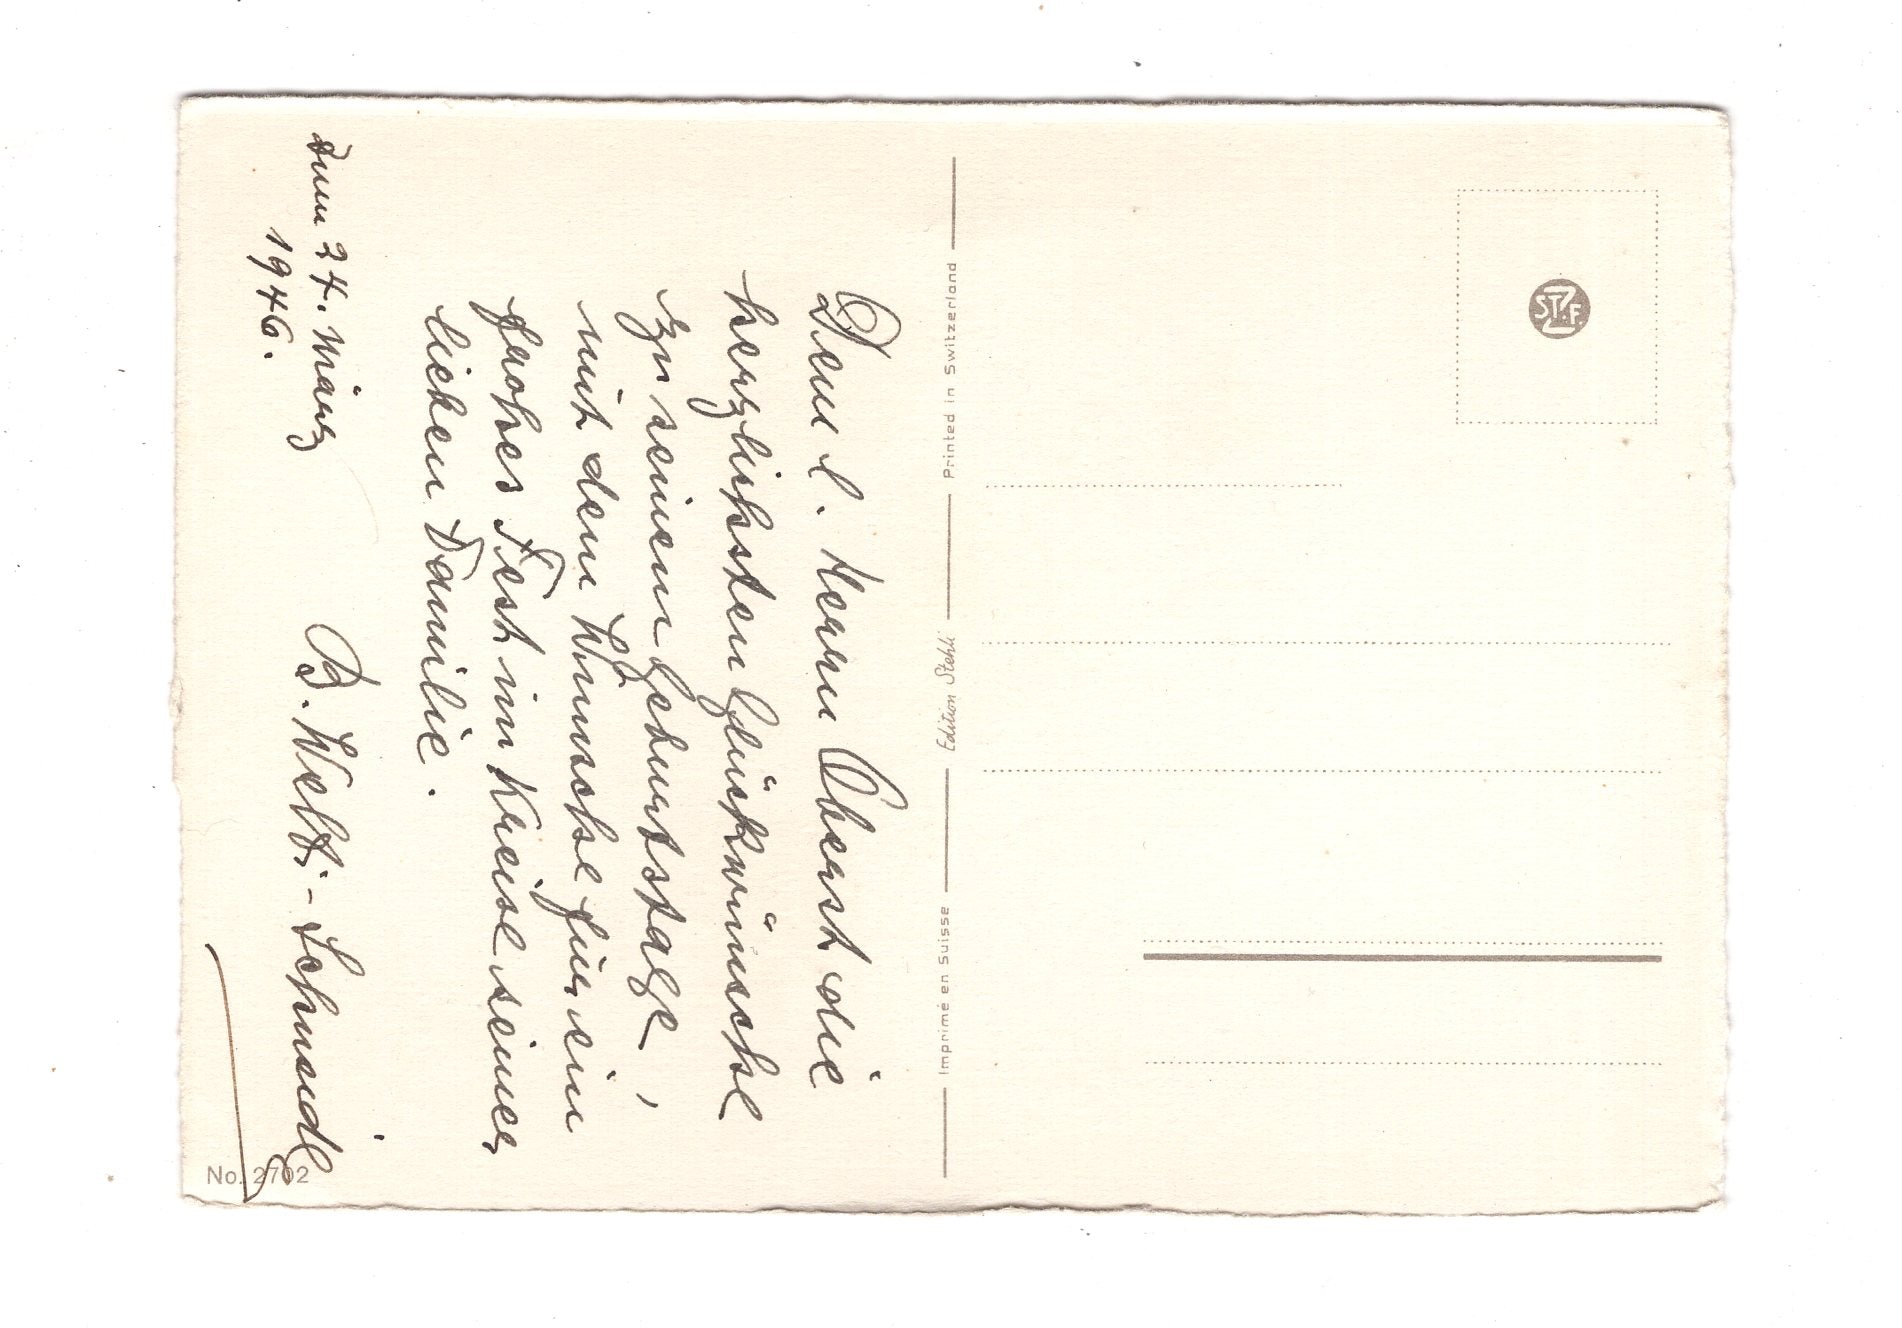 Dem l. Herrn Oberst die
herzlichsten Glückwünsche
zu seinem Geburtstage,
mit dem Wunsche für ein
frohes Fest im Kreise seiner
lieben Familie.
Zum 24. März
1946.
B. Welti-Schmidt
Printed in Switzerland
Edition Stehli
Imprimé en Suisse
No. 2702
ST.Z.F.